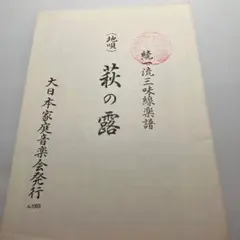 統一流三味線楽譜
(地唄)
萩の露
大日本家庭音楽会発行